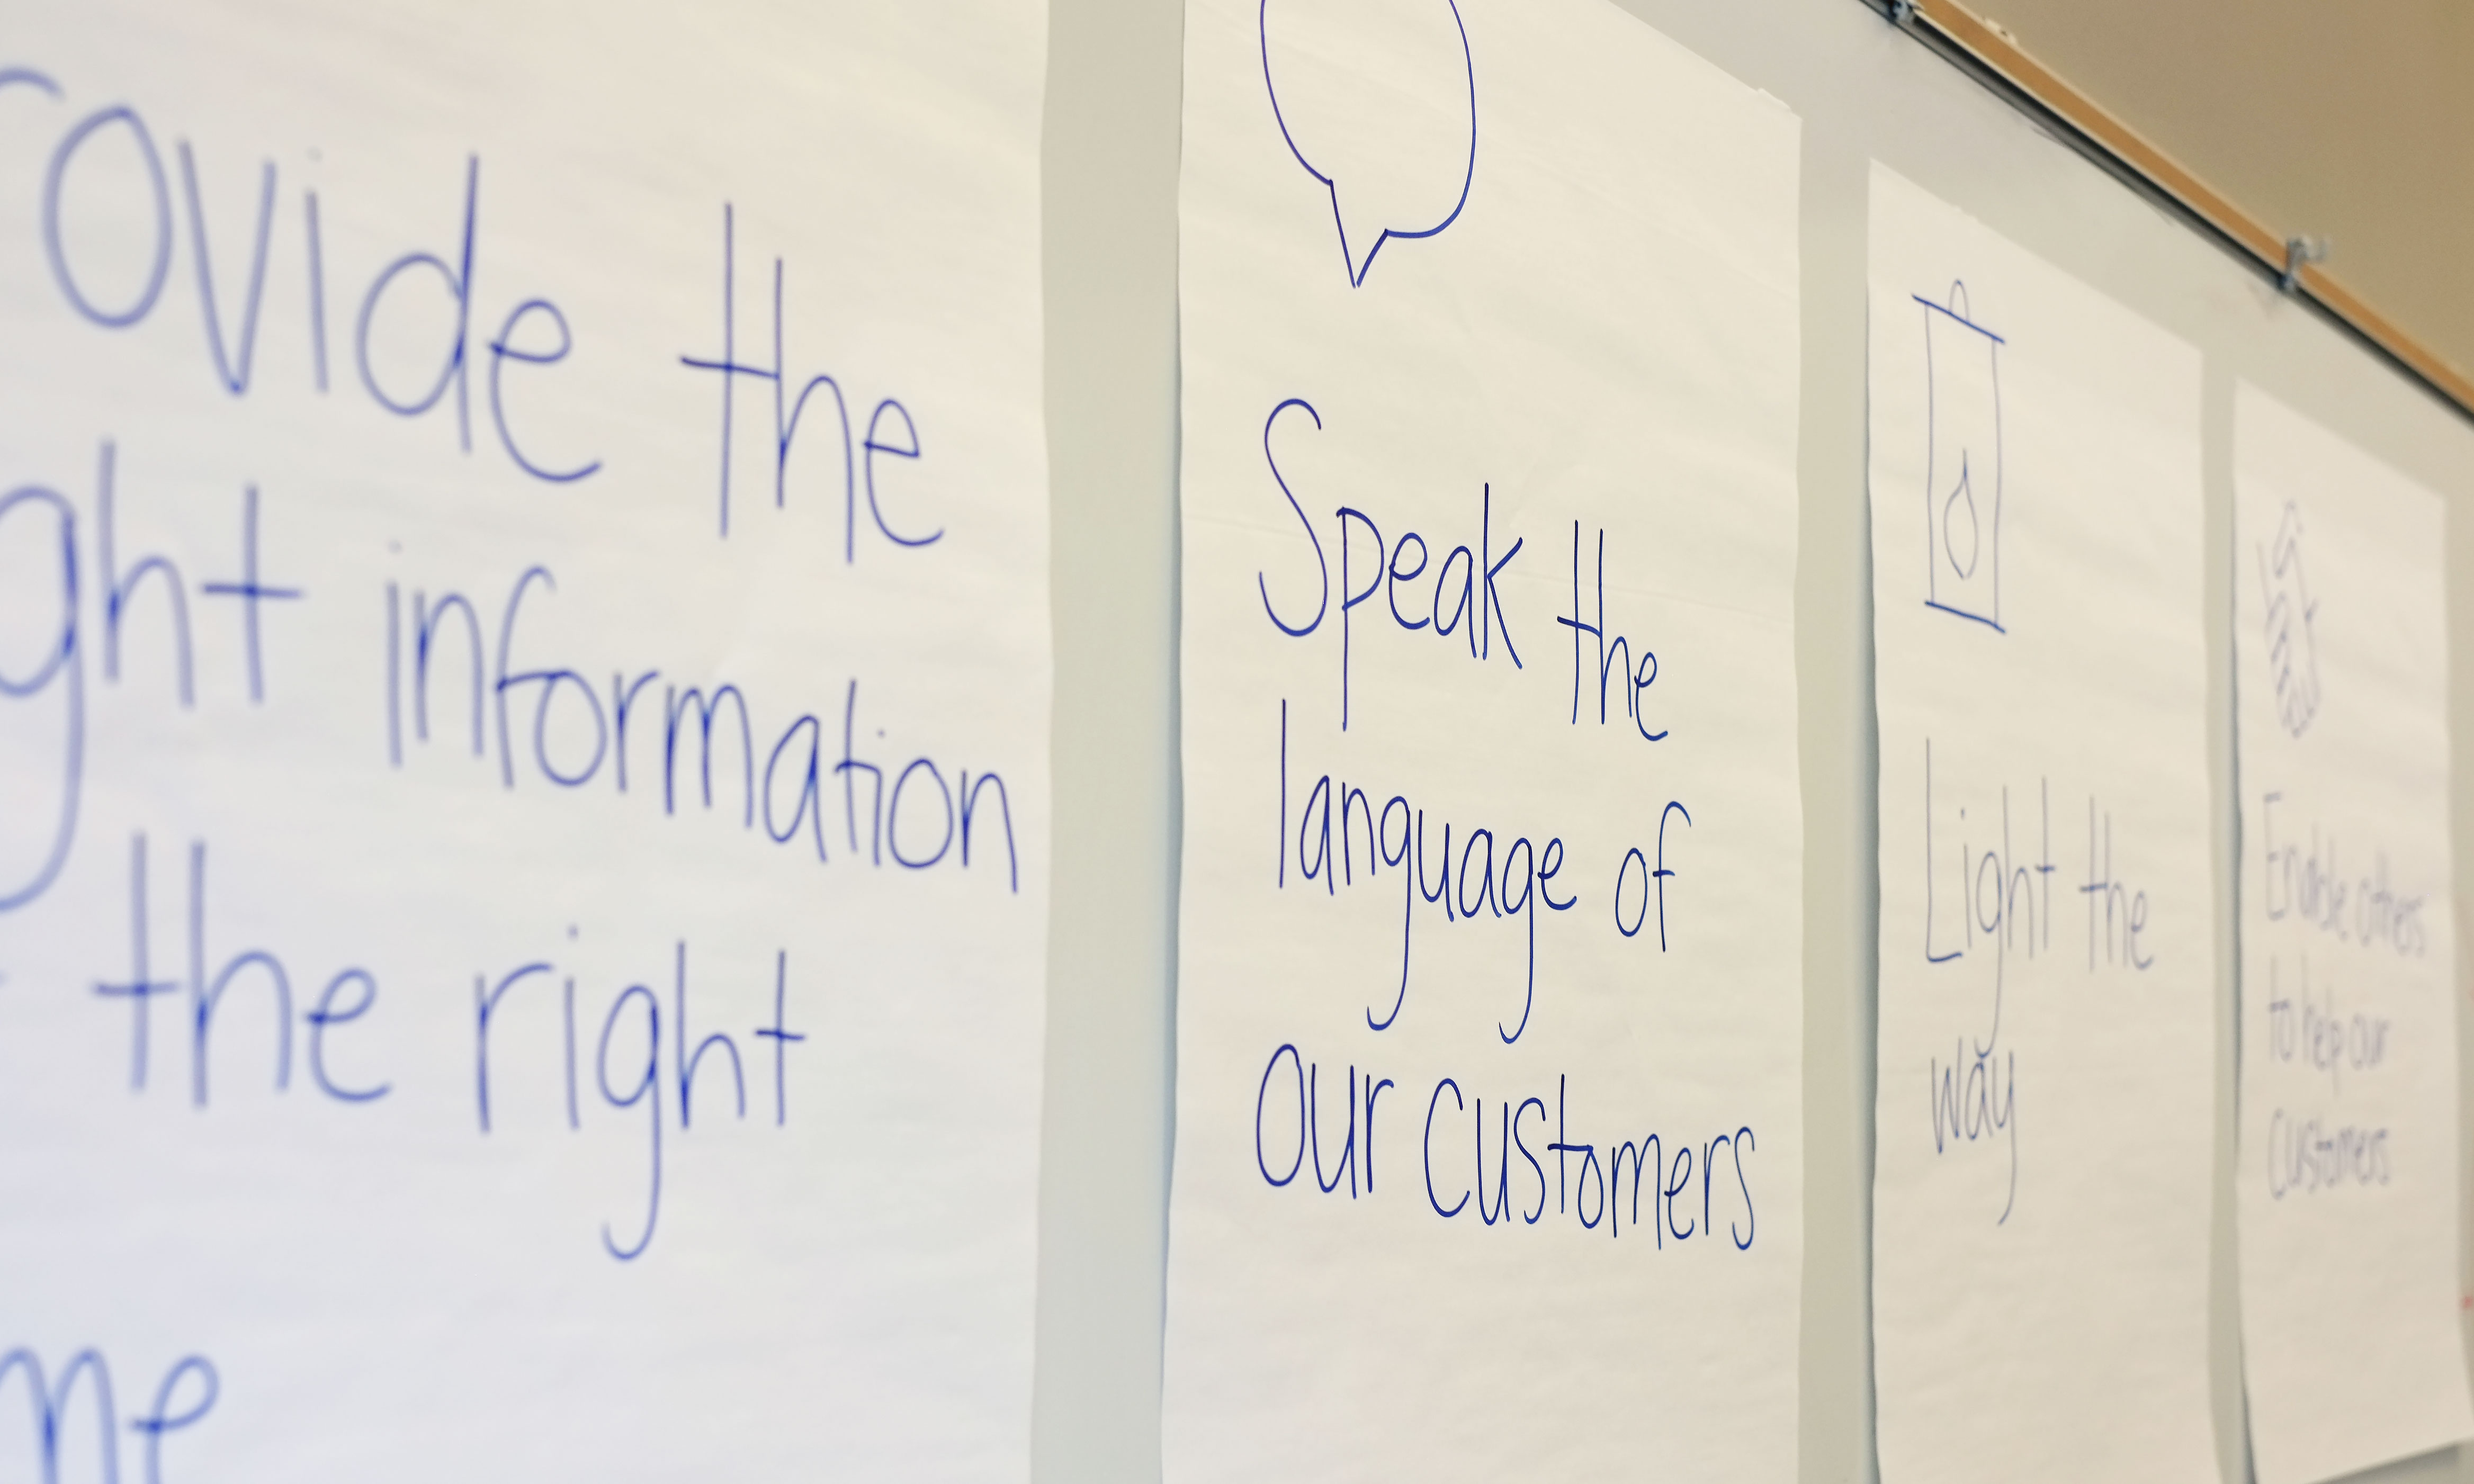 rovide the
ght information
the right
me
Speak the
language of
our customers
Light the
way
Enable others
to help our
customers